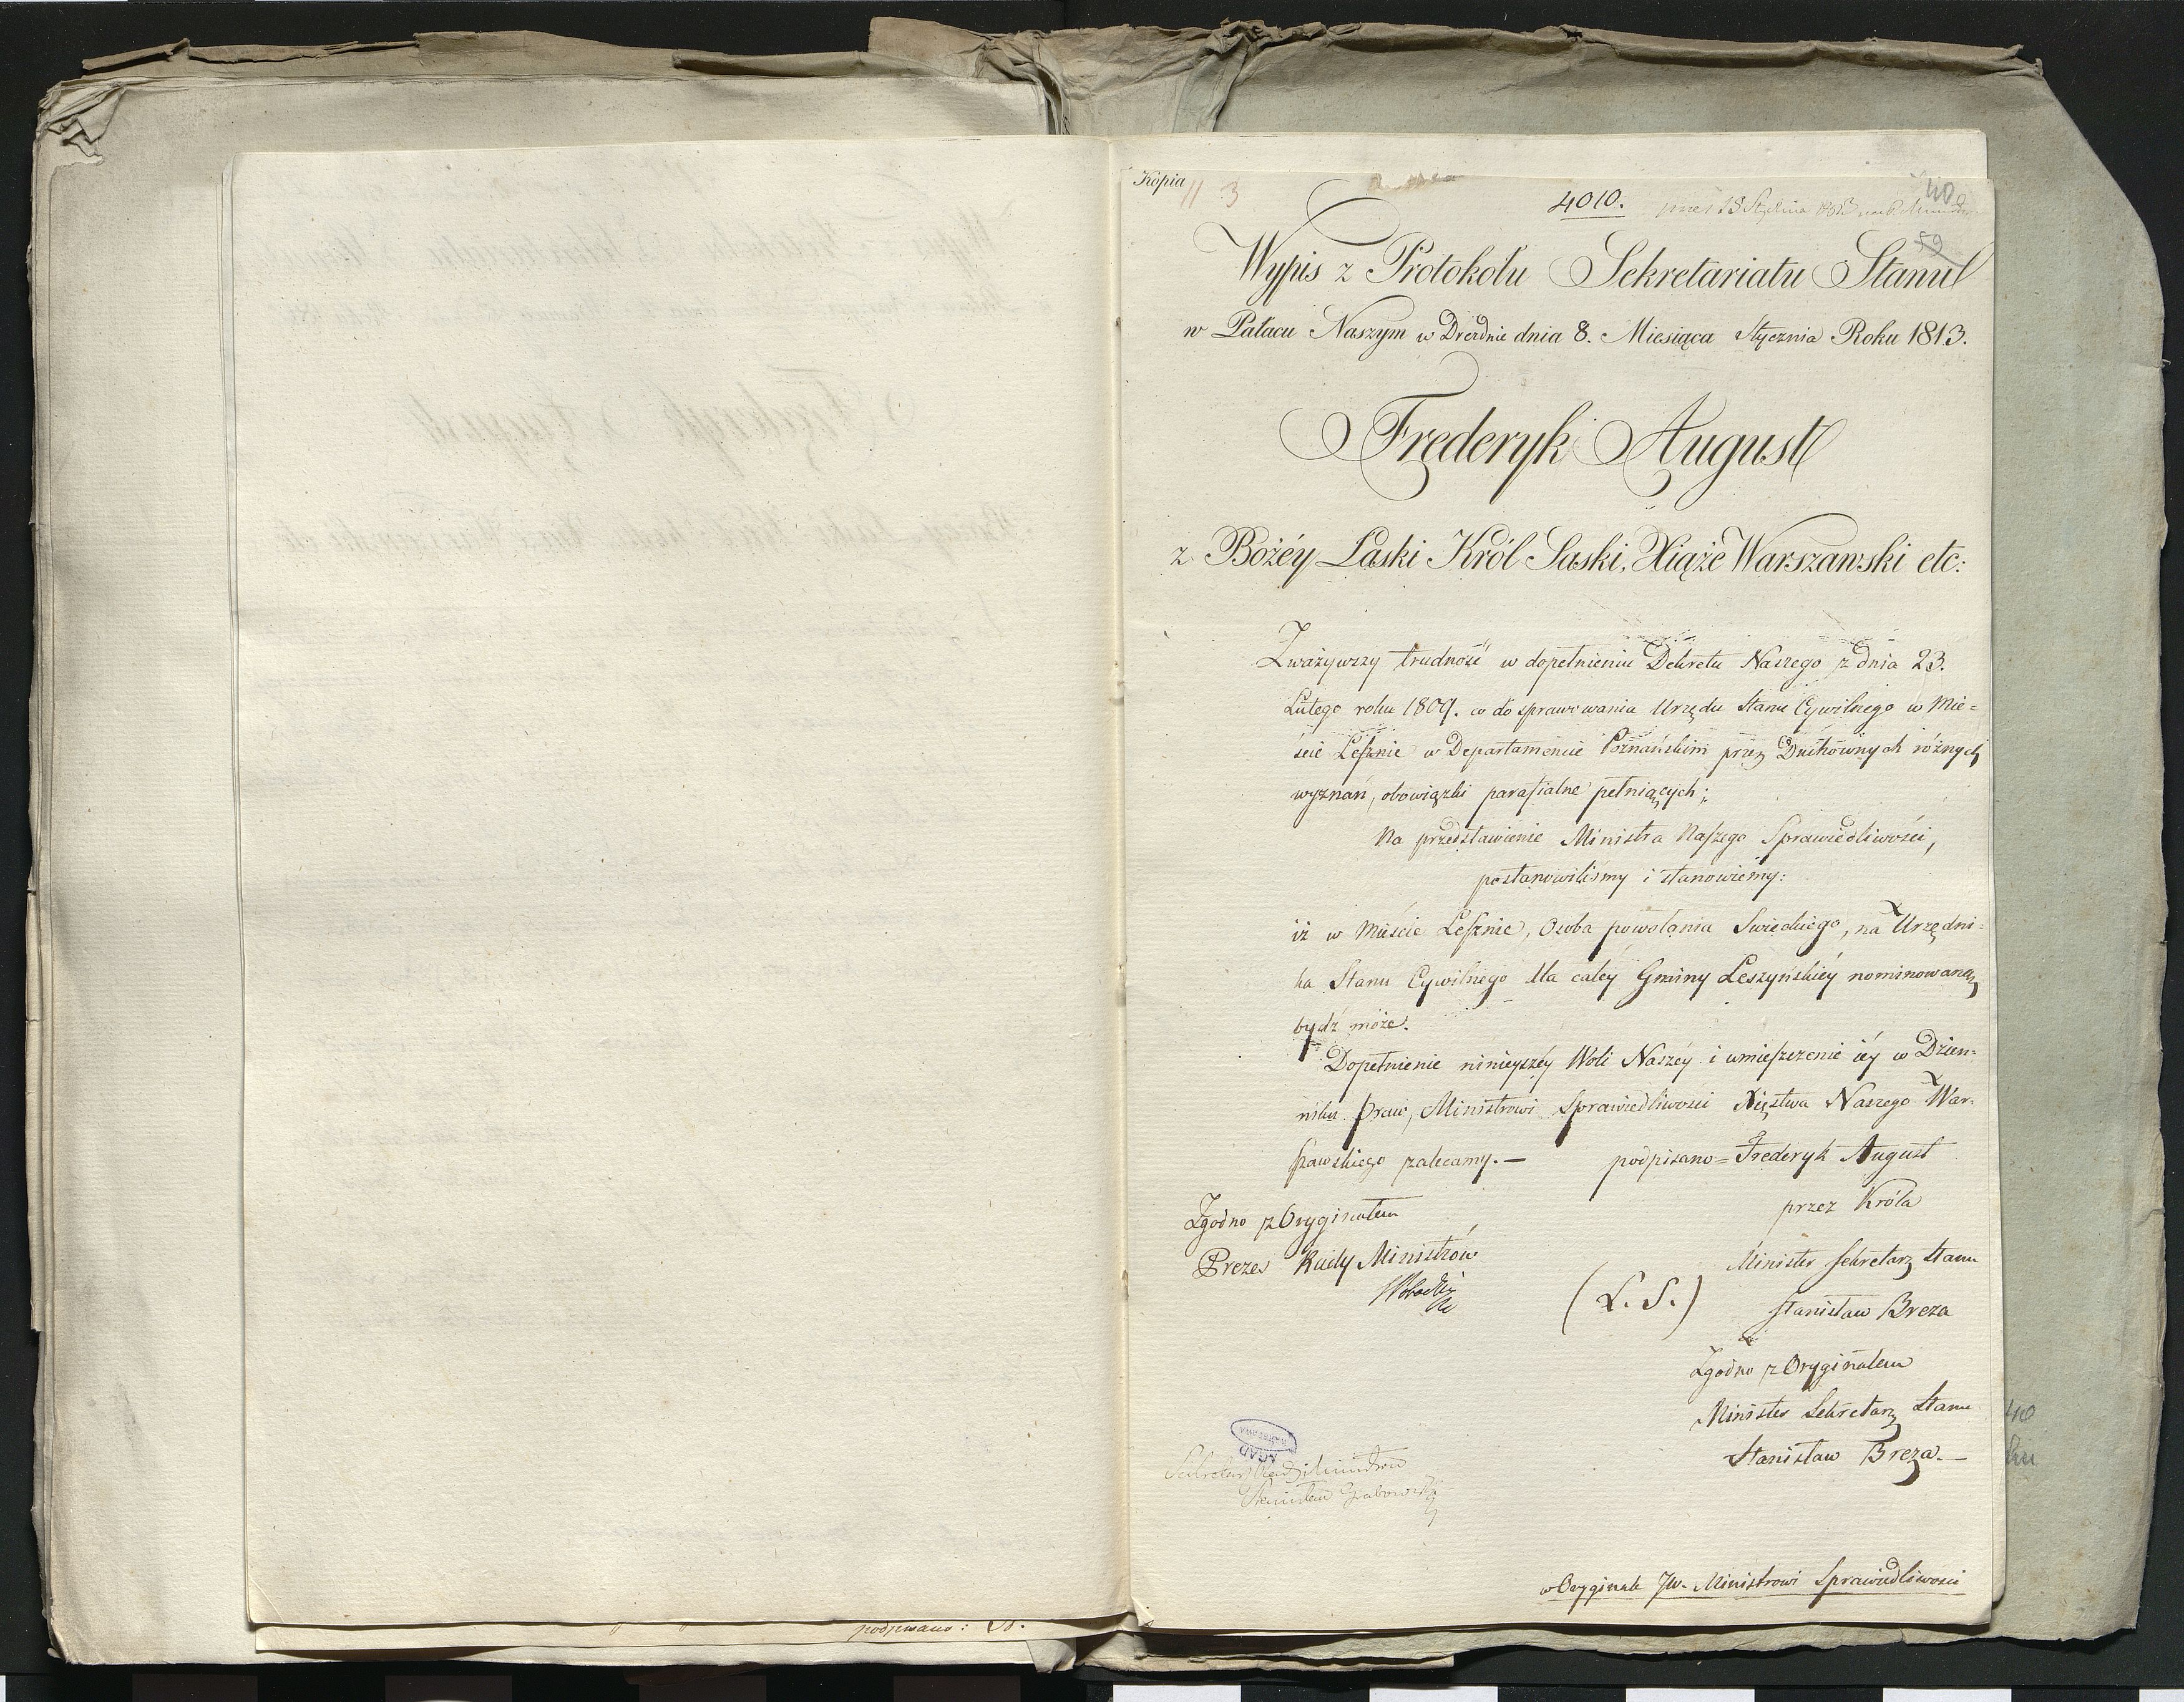 Kopia
3
4010.
40
59
Wypis z Protokołu Sekretariatu Stanu
w Pałacu Naszym w Dreźnie dnia 8. Miesiąca Stycznia Roku 1813.
Frederyk August
z Bożéy Laski Król Saski, Xiąże Warszawski etc:
Zważywszy trudność w dopełnieniu Dekretu Naszego z dnia 23.
Lutego roku 1809. co do sprawowania Urzędu Stanu Cywilnego w Mie=
ście Lesznie w Departamencie Poznańskim przez Duchownych różnych
wyznań, obowiązki parafialne pełniących;
Na przedstawienie Ministra Naszego Sprawiedliwości,
postanowiliśmy i stanowiemy:
iż w Mieście Lesznie, Osoba powołania Swieckiego, na Urzędni=
ka Stanu Cywilnego dla całey Gminy Leszyńskiéy nominowaną
bydź może.
Dopełnienie ninieyszéy Woli Naszéy i umieszczenie iéy w Dzien=
niku Praw, Ministrowi Sprawiedliwości Xięstwa Naszego War=
szawskiego zalecamy. — podpisano = Frederyk August
przez Króla
Zgodno z Oryginałem
Prezes Rady Ministrów
Minister Sekretarz Stanu
(L. S.) Stanisław Breza
Zgodno z Oryginałem
Minister Sekretarz Stanu
Stanisław Breza. —
AGAD
WARSZAWA
Sekretarz Rady Ministrów
Stanisław Grabowski
w Oryginale JW. Ministrowi Sprawiedliwości
podpisano:
40